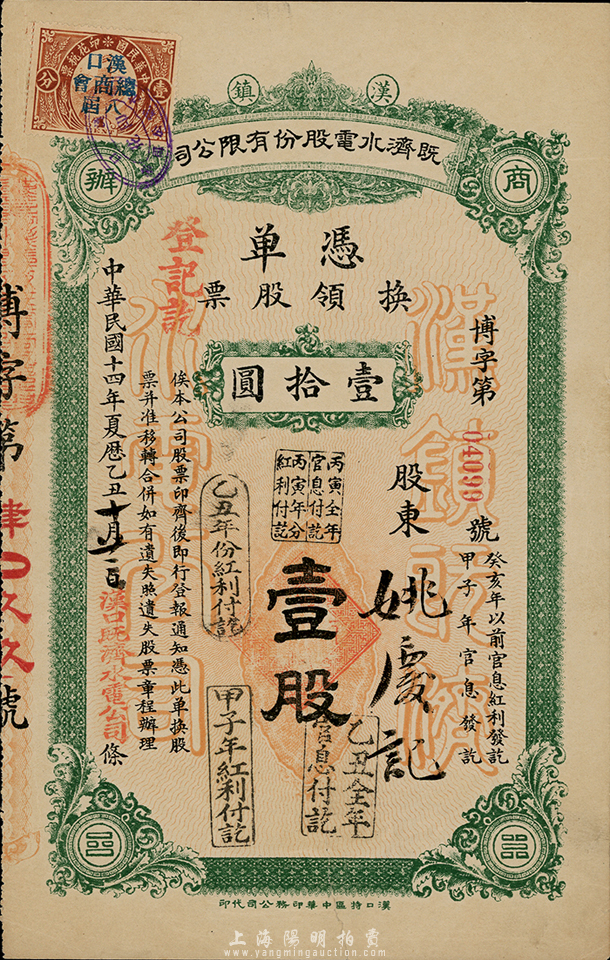 中華民國印花稅票
壹分
漢口總商會
漢鎮
既濟水電股份有限公司
商辦
憑單
換領股票
壹拾圓
博字第04099號
癸亥年以前官息紅利發訖
甲子年官息發訖
股東
姚慶記
壹股
丙寅全年官息付訖
丙寅年分紅利付訖
乙丑年份紅利付訖
乙丑全年官息付訖
甲子年紅利付訖
俟本公司股票印齊後即行登報通知憑此單換股
票并准移轉合併如有遺失照遺失股票章程辦理
中華民國十四年夏歷乙丑十月
漢口既濟水電公司條
登記訖
漢鎮既濟水電公司
博字第肆〇久久號
漢口特區中華印務公司代印
上海陽明拍賣
www.yangmingauction.com